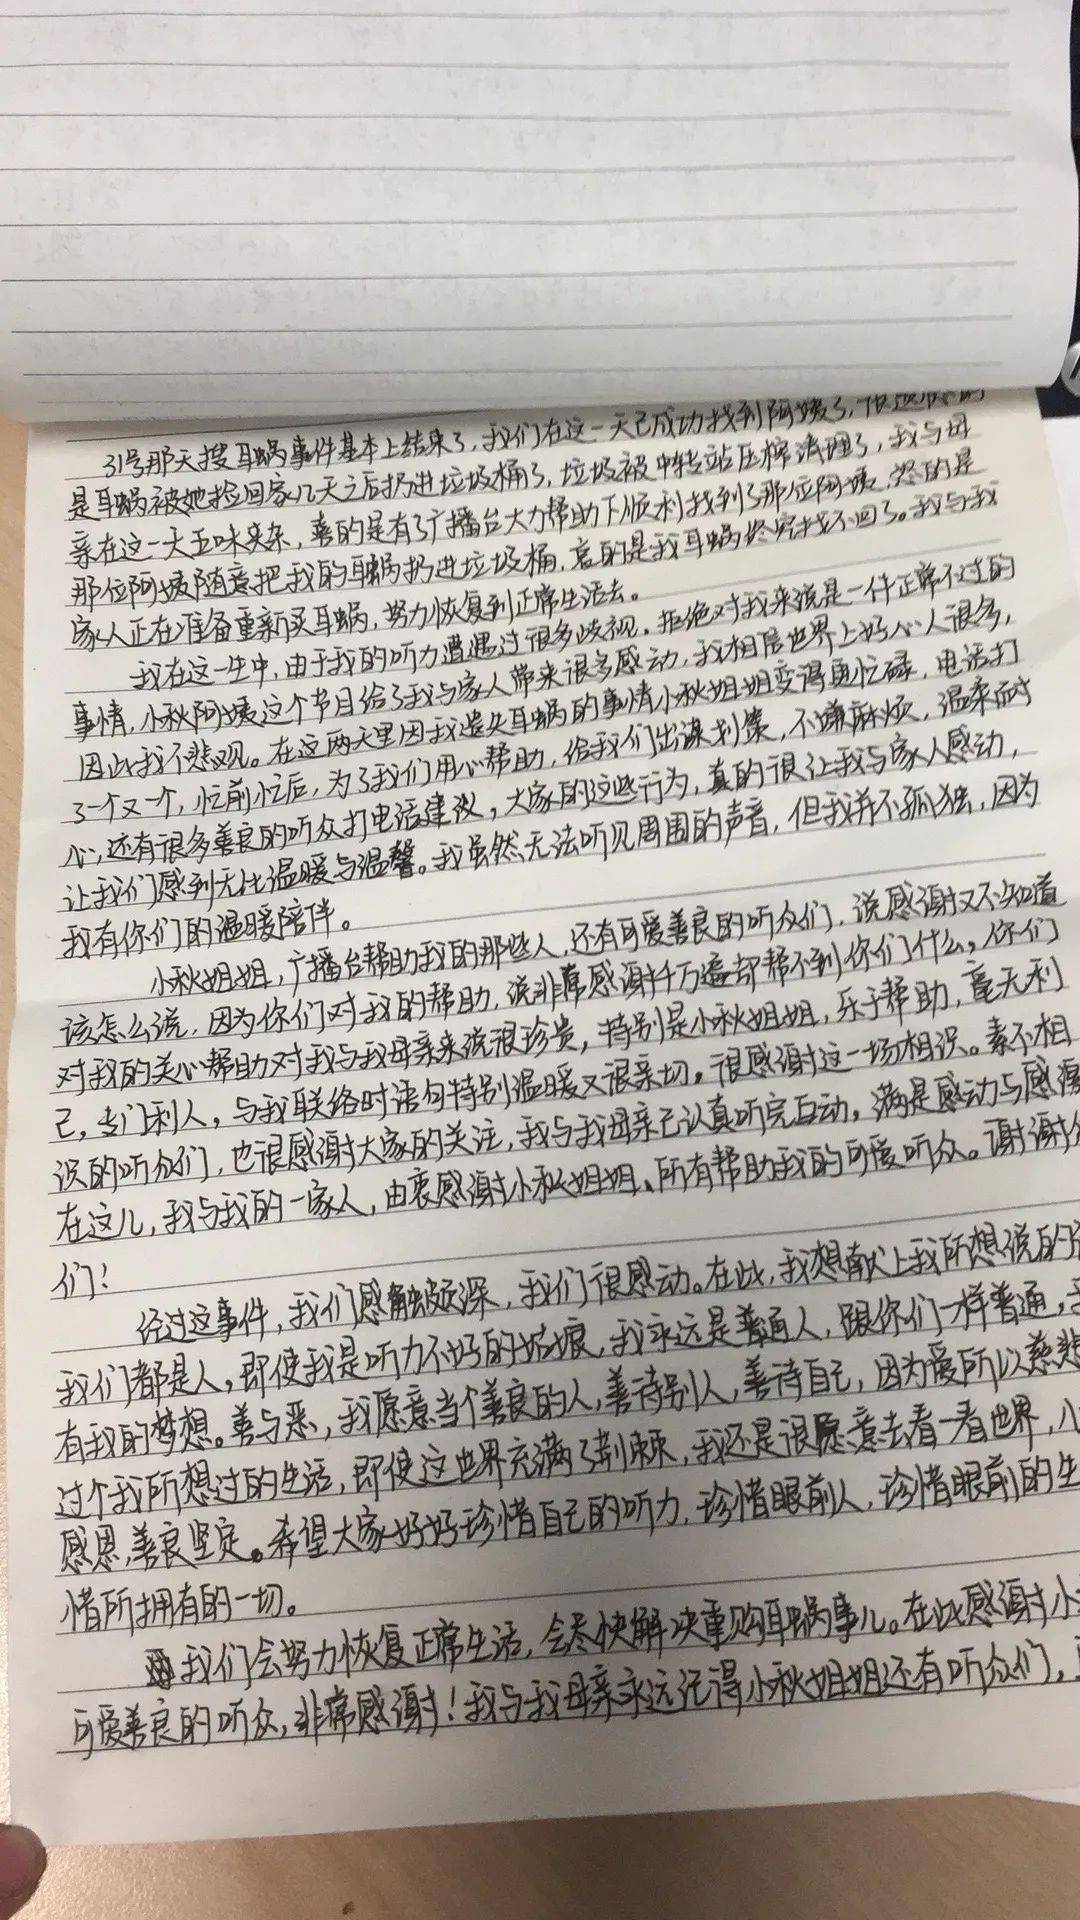 31号那天搜耳蜗事件基本上结束了,我们在这一天已成功找到阿姨了,很遗憾的
是耳蜗被她捡回家几天之后扔进垃圾桶了,垃圾被中转站压榨清理了,我与母
亲在这一天五味夹杂,喜的是有了广播台大力帮助下顺利找到了那位阿姨,怒的是
那位阿姨随意把我的耳蜗扔进垃圾桶,哀的是我耳蜗终究找不回了。我与我
家人正在准备重新买耳蜗,努力恢复到正常生活去。
我在这一生中,由于我的听力遭遇过很多歧视,拒绝对我来说是一件正常不过的
事情,小秋阿姨这个节目给了我与家人带来很多感动,我相信世界上好心人很多,
因此我不悲观。在这两天里因我遗失耳蜗的事情小秋姐姐变得更忙碌,电话打
了一个又一个,忙前忙后,为了我们用心帮助,给我们出谋划策,不嫌麻烦,温柔而耐
心,还有很多善良的听众打电话建议。大家的这些行为,真的很让我与家人感动,
让我们感到无比温暖与温馨。我虽然无法听见周围的声音,但我并不孤独,因为
我有你们的温暖陪伴。
小秋姐姐,广播台帮助我的那些人,还有可爱善良的听众们,说感谢又不知道
该怎么说,因为你们对我的帮助,说非常感谢千万遍却帮不到你们什么。你们
对我的关心帮助对我与我母亲来说很珍贵,特别是小秋姐姐,乐于帮助,毫无利
己,专门利人,与我联络时语句特别温暖又很亲切。很感谢这一场相识。素不相
识的听众们,也很感谢大家的关注,我与我母亲已认真听完互动。满是感动与感激
在这儿,我与我的一家人,由衷感谢小秋姐姐、所有帮助我的可爱听众。谢谢你
们!
经过这事件,我们感触颇深,我们很感动。在此,我想献上我所想说的
我们都是人,即使我是听力不好的姑娘,我永远是普通人,跟你们一样普通,我
有我的梦想。善与恶,我愿意当个善良的人,善待别人,善待自己,因为爱所以慈悲
过个我所想过的生活,即使这世界充满了荆棘,我还是很愿意去看一看世界,心
感恩,善良坚定。希望大家好好珍惜自己的听力,珍惜眼前人,珍惜眼前的生
惜所拥有的一切。
我们会努力恢复正常生活,会尽快解决重购耳蜗事儿。在此感谢小
可爱善良的听众,非常感谢!我与我母亲永远记得小秋姐姐还有听众们,